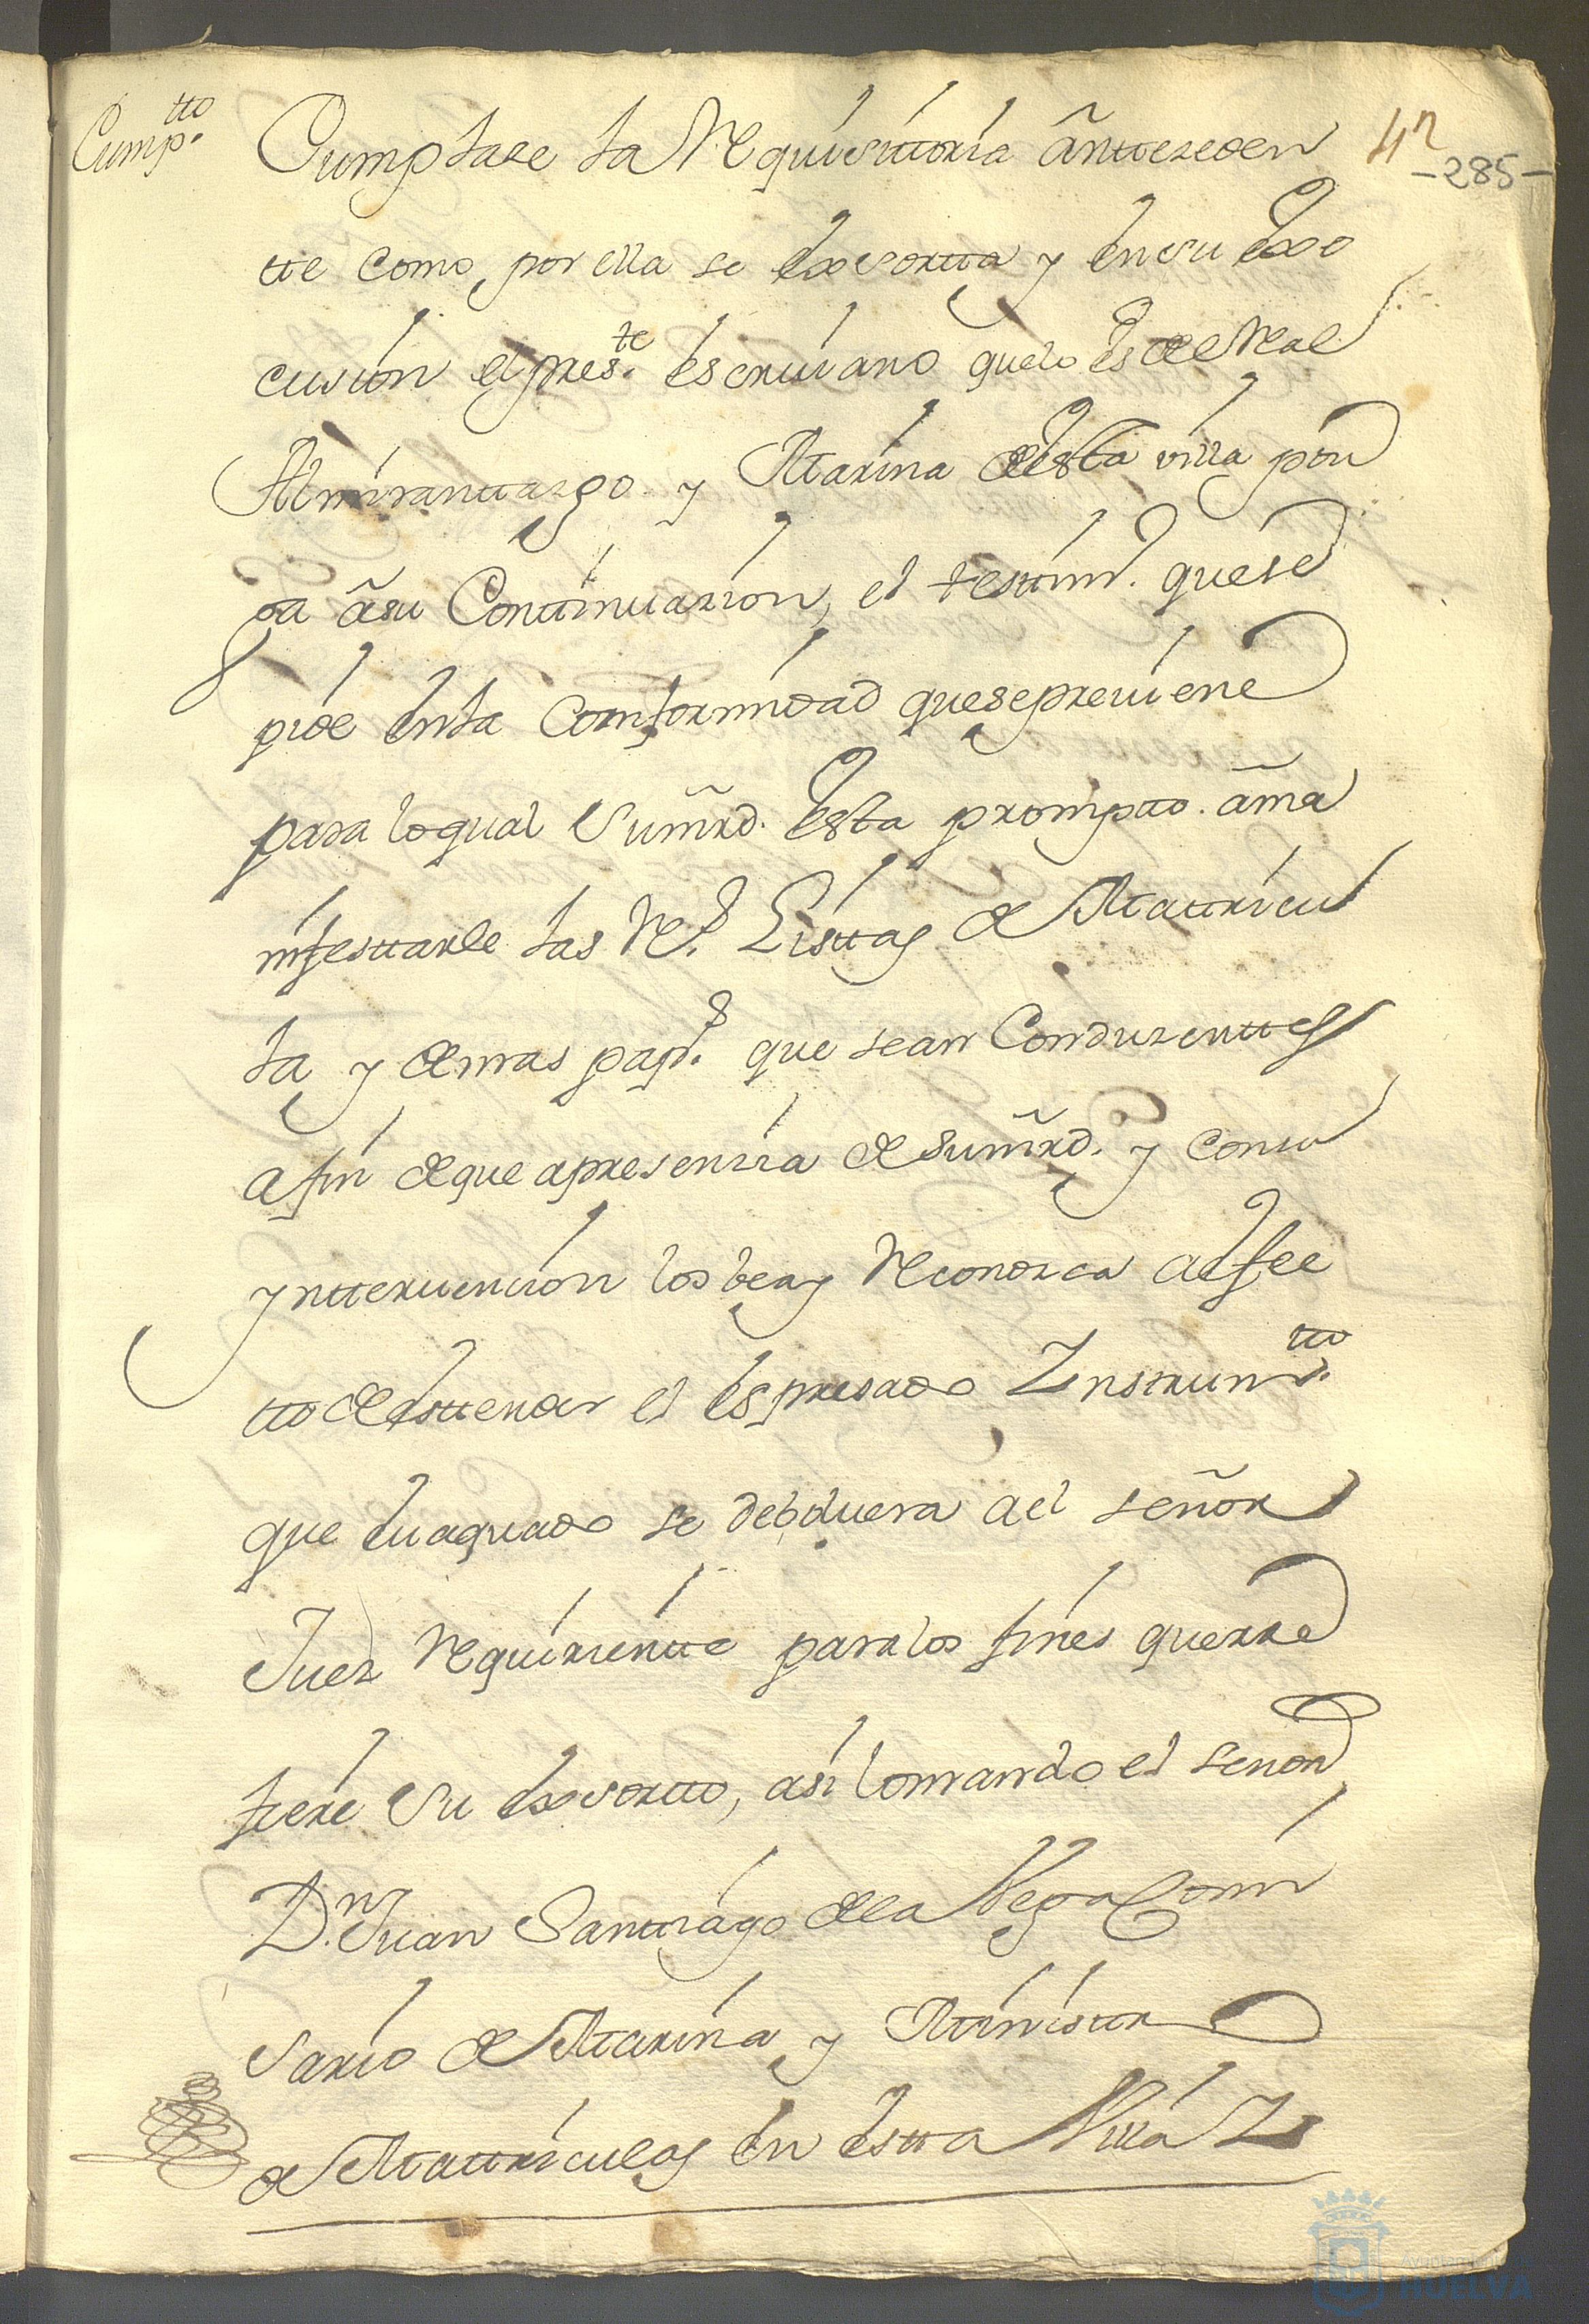 Cump.tto
42
-285-
Cumplase la Requisittoria anttezeden
tte como por ella se exsortta y en su exe
cusion el pres.te escriuano que lo es de el Real
Almiranttazgo y Marina de esta villa pon
ga a su Conttinuazion, el testim.o que se
pide en la Comformidad que se preuiene
para lo qual Su mrd. esta promptto a ma
nifesttarle las R.s Listtas de Mattricu
la y demas pap.s que sean Conduzenttes
a fin de que a presenzia de su mrd. y con su
ynttervencion los bea y Reconozca a efec
tto de esttender el espresado Instrum.tto
que euaquado se deboluera a el señor
Juez Requirientte para los fines que rre
fiere Su exsortto, asi lo mando el senor
D.n Juan Santtiago de la Vega Comi
sario de Marina y Ministtro
de Mattriculas en estta Villa
Ayuntamiento de
HUELVA